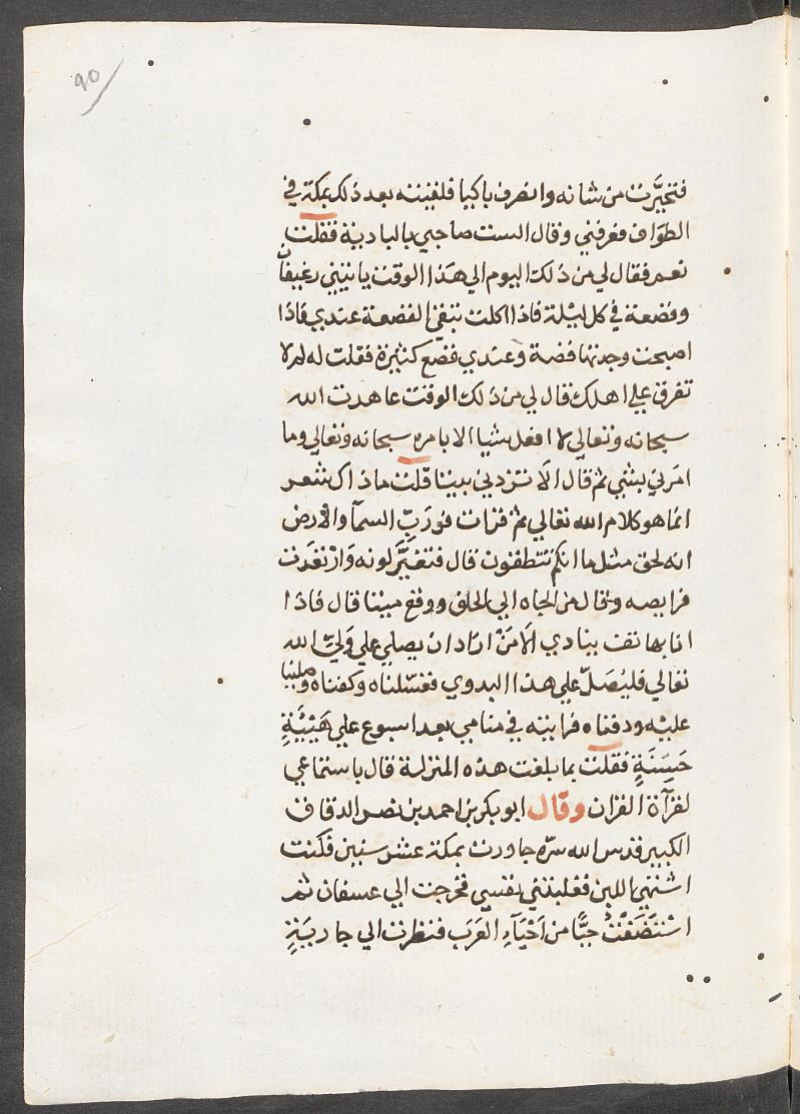 90
فتحيَّرت من شانه وانصرف باكيا فلقيته بعد ذلك بمكة في
الطوَاف فعرفني وقال الست صاحبي بالبادية فقلت
نعم فقال لي من ذلك اليوم الي هَذا الوقت ياتيني رغيفان
وقصعة في كل ليْلة فاذا اكلت تبقي القصعة عندي فاذا
اصبحت وجدتها فضة وعندي قصع كثيرة فقلت له لم لا
تفرق علي اهلك قال لي من ذلك الوقت عاهدت الله
سبحانه وتعالي لا افعل شيا الا بامره سبحانه وتعالي وما
امَرني بشي ثم قال الَا تزدني بيتا قلت ما ذاك شعر
انما هو كلام الله تعالي ثم قرات فورَبِّ السمآ والارض
انه لحق مثل ما انكم تنطقون قال فتغيَّر لونه وَارْتعَدت
فرايصه وقال من الجاه الي الحلف ووقع ميتا قال فاذا
انا بهاتف ينادي الَا مَنْ ارَاد ان يصلي علي وَليّ الله
تعالي فليُصَلّ علي هذا البدوي فغسّلناه وكفناه وصلينا
عليْه ودفناه فرايته في منامي بعد اسبوع علي هَيْئَةٍ
حَسِنَةٍ فقلت بما بلغت هذه المنزلة قال باستماعي
لقرآة القران وقال ابو بكر بن احمد بن نصر الدقاق
الكبير قدس الله سرّه جاورت بمكة عشر سنين فكنت
اشتهي اللبن فغلبتني نفسي فخرجت الي عسفان ثم
اسْتَضَفْتُ حيًّا من اَحْيَآءِ العَرَب فنظرت الي جاريَةٍ